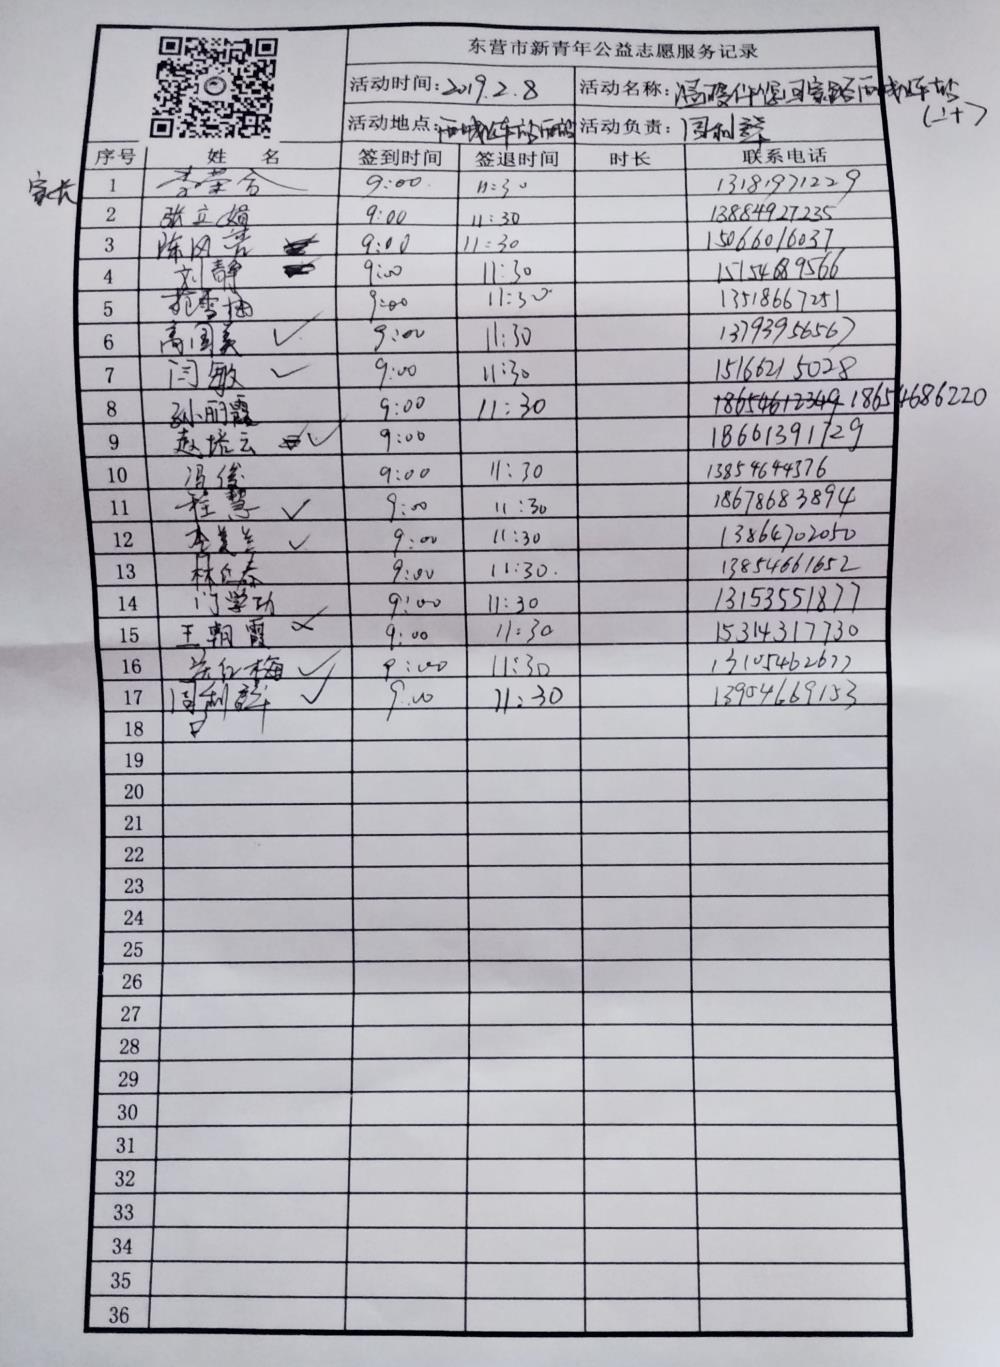 东营市新青年公益志愿服务记录
活动时间:2019.2.8 活动名称:温暖伴您回家路西城汽车站
(二十)
活动地点:西城汽车站 活动负责:周利
序号 姓 名 签到时间 签退时间 时长 联系电话
家长 1 李荣 9:00 11:30 13181971229
2 张立娟 9:00 11:30 13884927235
3 陈风 9:00 11:30 15066016037
4 刘静 9:00 11:30 15154689566
5 9:00 11:30 13518667251
6 高国美 ✓ 9:00 11:30 13793956567
7 闫敏 ✓ 9:00 11:30 15166215028
8 孙丽霞 9:00 11:30 18654612349 18654686220
9 赵培云 ✓ 9:00 18661391729
10 冯俊 9:00 11:30 13854644376
11 程慧 ✓ 9:00 11:30 18678683894
12 李美兰 ✓ 9:00 11:30 13864702050
13 林红春 9:00 11:30. 13854661652
14 门学功 9:00 11:30 13153551877
15 王朝霞 9:00 11:30 15314317730
16 红梅 ✓ 9:00 11:30 13105462677
17 周利 ✓ 9:00 11:30 13954669153
18
19
20
21
22
23
24
25
26
27
28
29
30
31
32
33
34
35
36